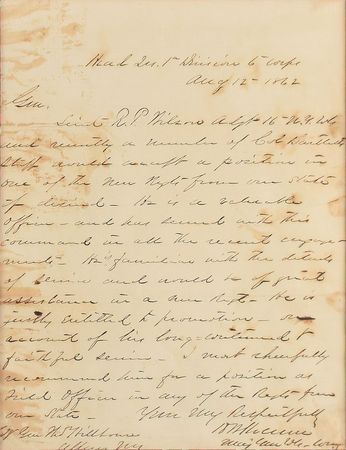 Head Qrs. 1st Division 6th Corps
Aug 12th 1862
Lieut R. P. Wilson Adjt 16th N.Y. Vols
and recently a member of Col Bartletts
Staff would accept a position in
one of the new Regts from our State
if desired - He is a valuable
Officer - and has served with this
command in all the recent engage-
ments - He is familiar with the details
of service and would be of great
assistance in a new Regt - He is
justly entitled to promotion - on
account of his long-continued &
faithful service - I most cheerfully
recommend him for a position as
Field Officer in any of the Regts from
our State - Your Very Respectfully
Gen Thos Hillhouse
Albany NY Maj Gen Vols Comg